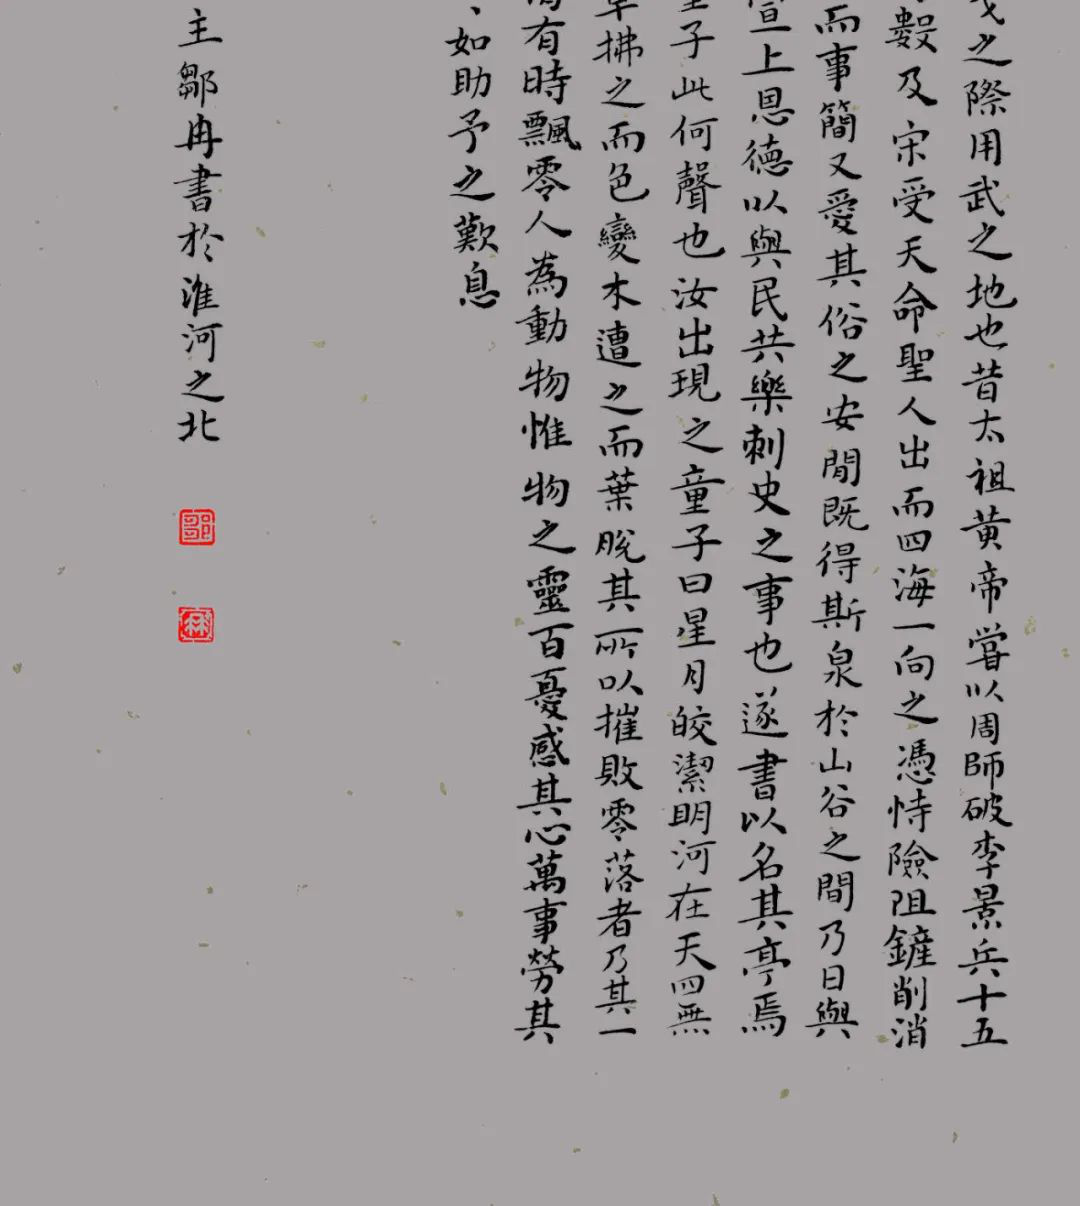 之際用武之地也昔太祖黄帝嘗以周師破李景兵十五
數及宋受天命聖人出而四海一向之憑恃險阻鏟削消
而事簡又愛其俗之安閒既得斯泉於山谷之間乃日與
宣上恩德以與民共樂刺史之事也遂書以名其亭焉
子此何聲也汝出現之童子曰星月皎潔明河在天四無
草拂之而色變木遭之而葉脫其所以摧敗零落者乃其一
有時飄零人為動物惟物之靈百憂感其心萬事勞其
如助予之歎息
主鄒冉書於淮河之北
鄒
冉